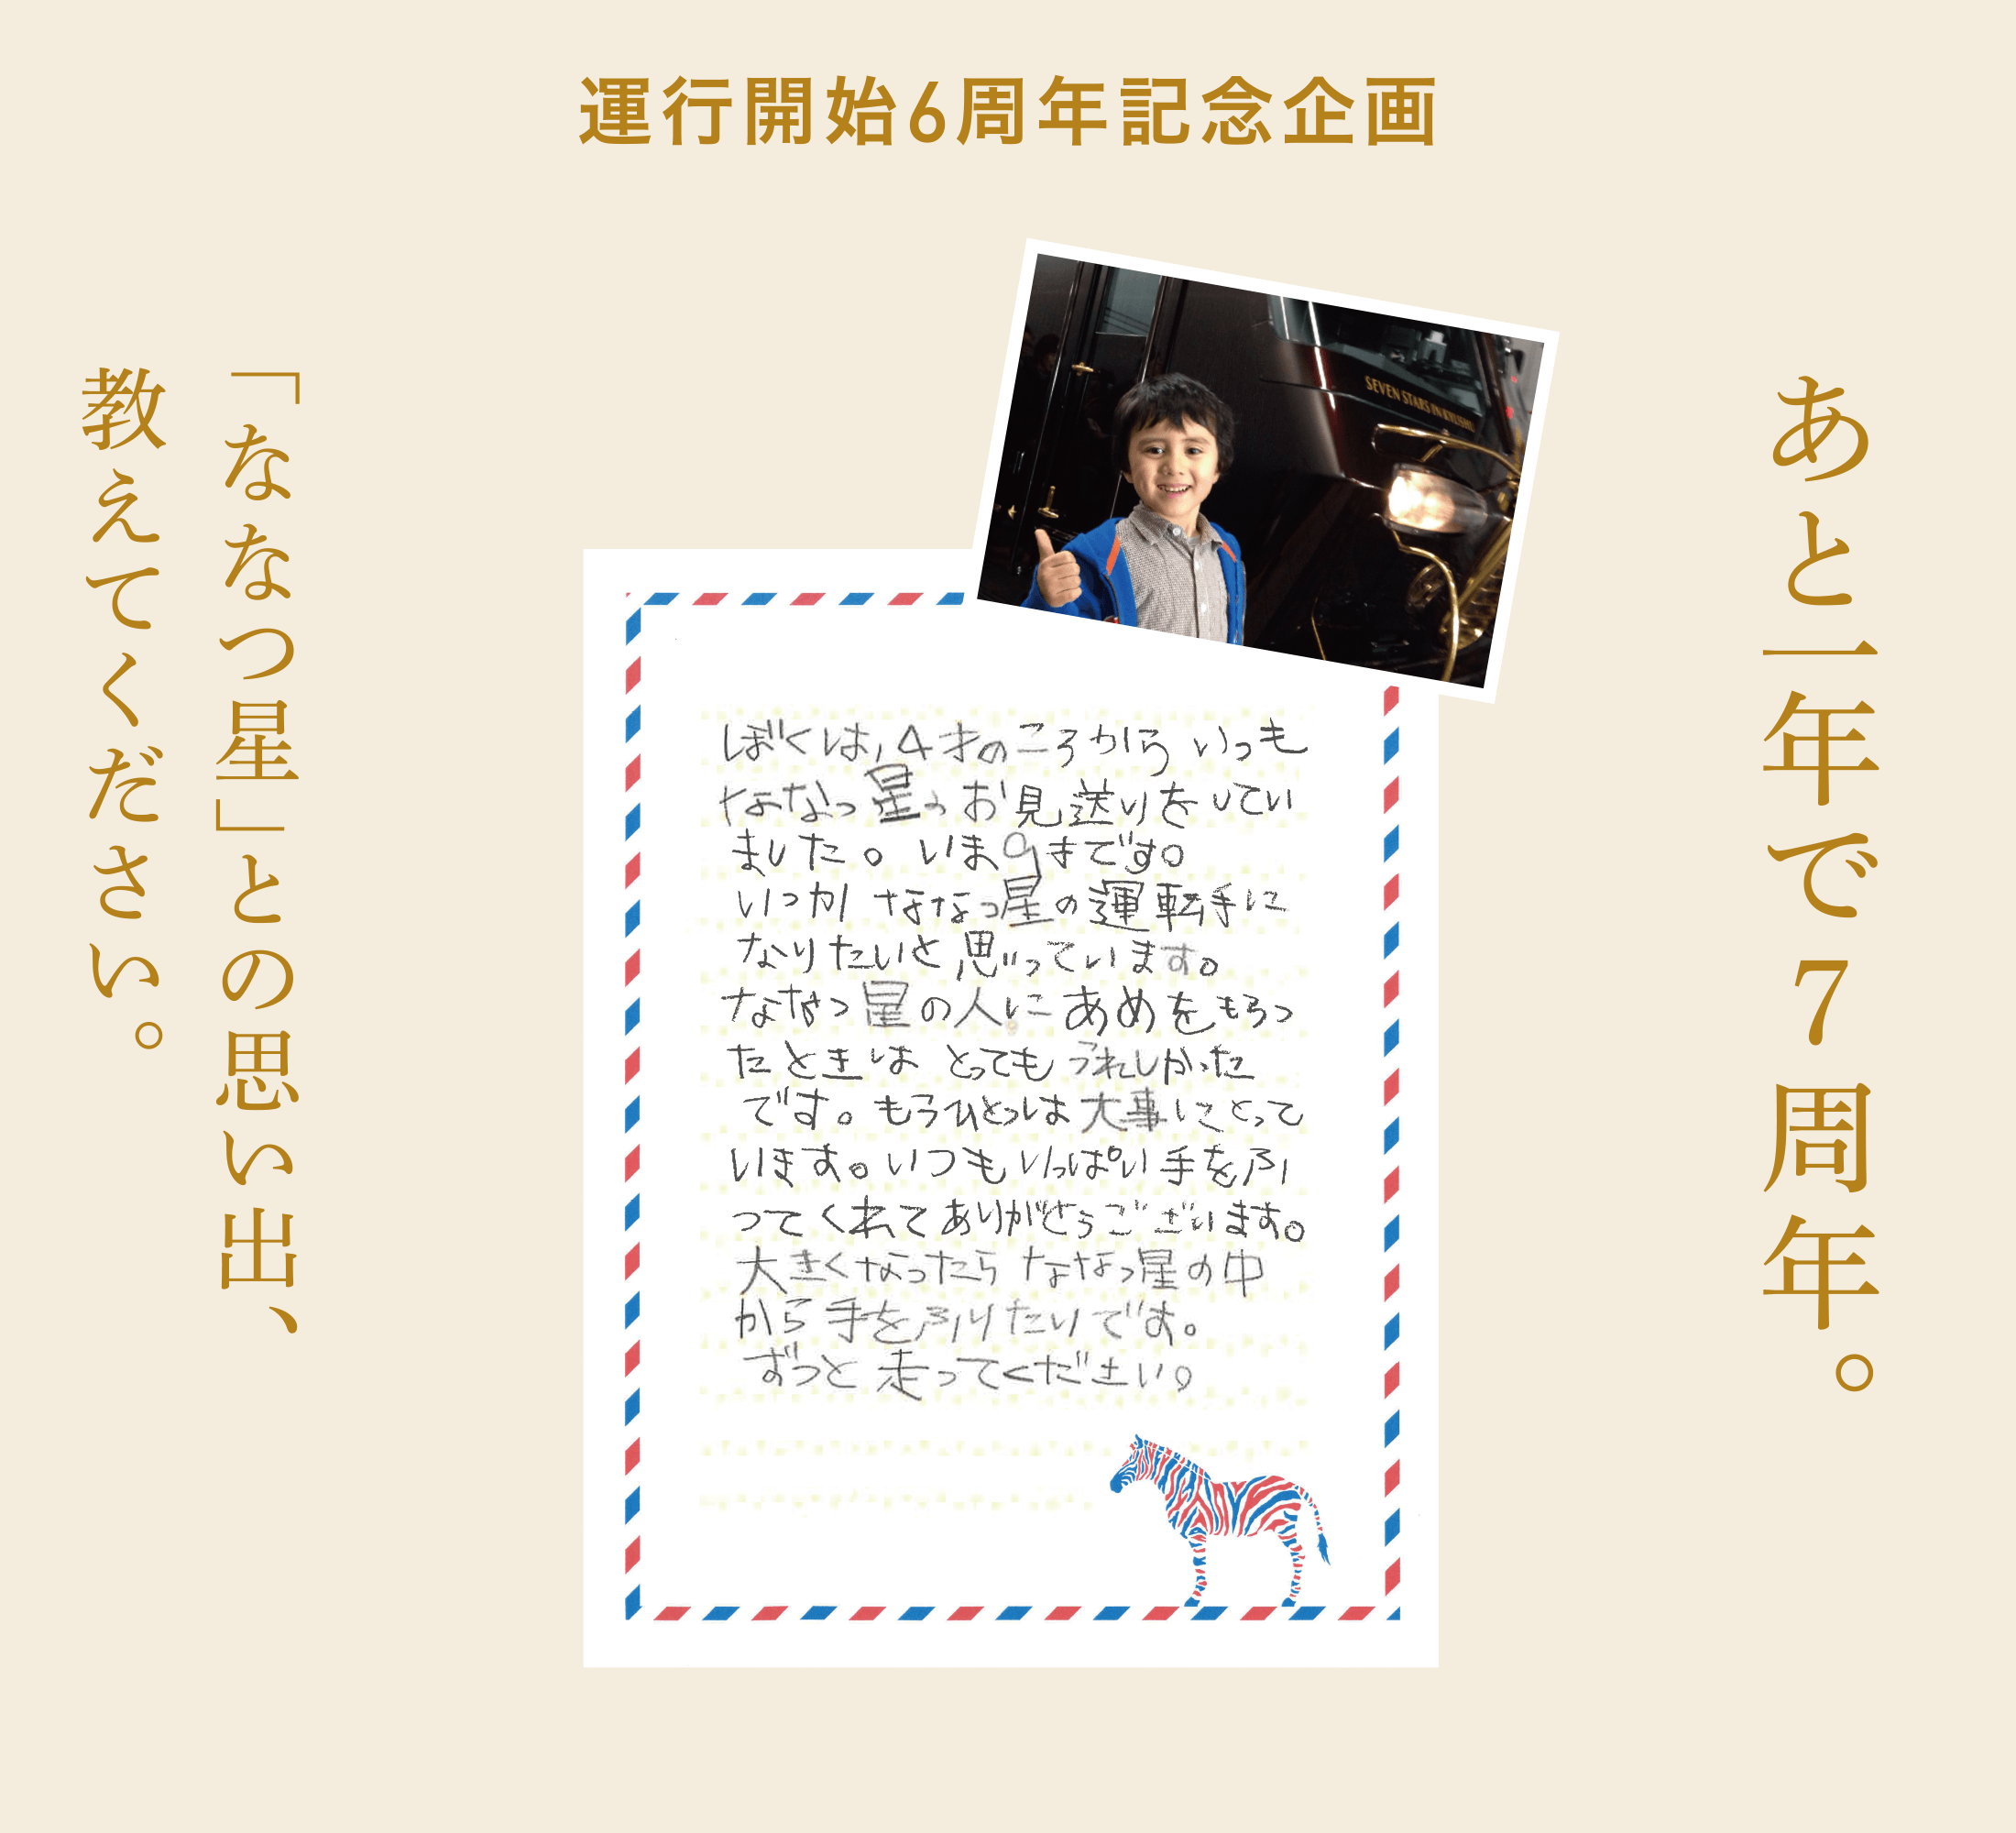 運行開始6周年記念企画
あと一年で7周年。
「ななつ星」との思い出、
教えてください。
SEVEN STARS IN KYUSHU
ぼくは,4才のころからいつも
ななつ星のお見送りをしてい
ました。いま9才です。
いつかななつ星の運転手に
なりたいと思っています。
ななつ星の人にあめをもらっ
たときはとってもうれしかった
です。もうひとつは大事にとって
います。いつもいっぱい手をふ
ってくれてありがとうございます。
大きくなったらななつ星の中
から手をふりたいです。
ずっと走ってください。